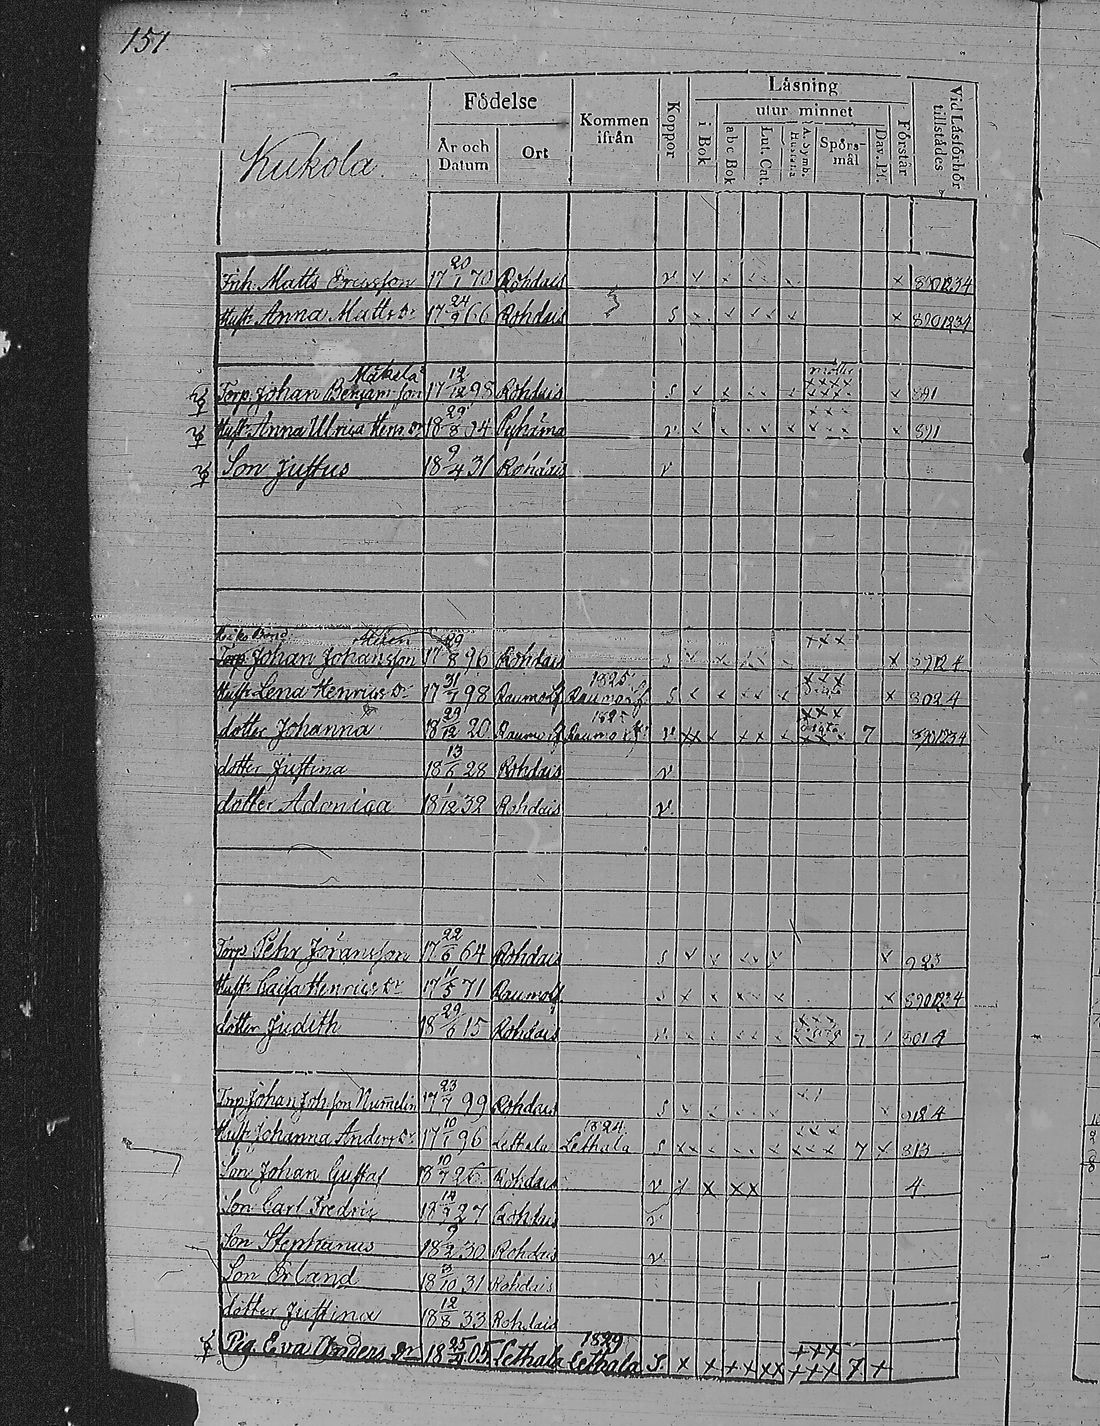 151
Kukola.
Födelse
År och Datum
Ort
Kommen ifrån
Koppor
Läsning
i Bok
utur minnet
abc Bok
Lut. Cat.
A. Symb. Hustafla
Spörs-mål
Dav. Ps.
Förstår
Vid Läsförhör tillstädes
Inh. Matts Ericsson 17 20/1 70 Rohdais v x x x x x x 8901234
Hustr Anna Matts Dr 17 24/9 66 Rohdais s x x x x x x 8901234
Mäkelä
Torp. Johan Benjamsson 17 12/12 98 Rohdais s x x x x x x 891
Hustr Anna Ulrica Henr Dr 18 29/8 04 Pyhäma v x x x x x x 891
Son Justus 18 9/4 31 Rohdais v
Torp. Johan Johansson 17 29/8 96 Rohdais s x x x x x
Hustr Lena Henrics Dr 17 31/7 98 Raumo lf 1825 Raumo lf s x x x x x x 8024
dotter Johanna 18 29/12 20 Raumo lf Raumo lf v xx x x x x 7
dotter Justina 18 13/6 28 Rohdais v
dotter Adamina 18 1/12 32 Rohdais v.
Torp Pehr Jöransson 17 22/6 64 Rohdais s v v x x v x 923
Hustr Caisa Henrics Dr 17 11/5 71 Raumo lf s x x x x x x 8901234
dotter Judith 18 29/6 15 Rohdais 7 8014
Torp Johan Joh son Numelin 17 23/7 99 Rohdais s 9184
Hustr Johanna Anders Dr 17 10/1 96 Lethala 1824 Lethala s xx x x x x xxx 7 x 813
Son Johan Gustaf 18 10/7 26 Rohdais v x x xx 4
Son Carl Fredric 18 18/9 27 Rohdais v
Son Stephanus 18 9/2 30 Rohdais v
Son Erland 18 3/10 31 Rohdais
dotter Justina 18 12/8 33 Rohdais
Pig. Eva Anders Dr 18 25/4 05 Lethala 1829 Lethala S. x x xx xx xxx xxx 7 x